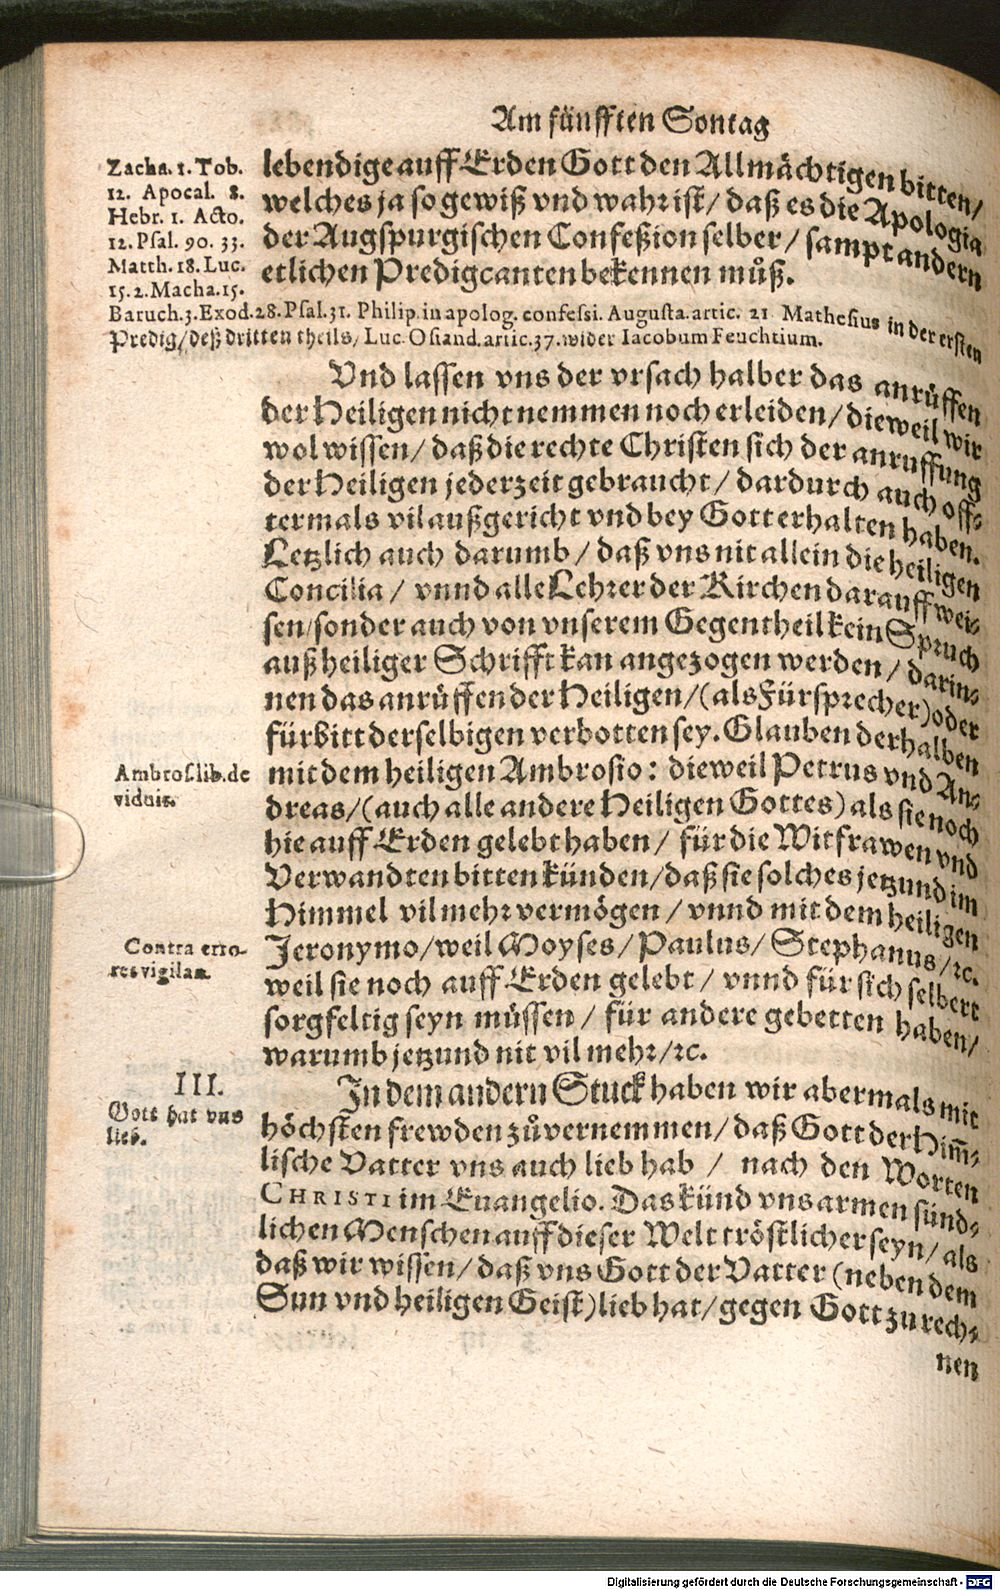 Am fünfften Sontag
Zacha. 1. Tob.
12. Apocal. 8.
Hebr. 1. Acto.
12. Psal. 90. 33.
Matth. 18. Luc.
15. 2. Macha. 15.
lebendige auff Erden Gott den Allmächtigen bitten/
welches ja so gewiß vnd wahr ist/ daß es die Apologia
der Augspurgischen Confeßion selber/ sampt andern
etlichen Predigcanten bekennen můß.
Baruch. 3. Exod. 28. Psal. 31. Philip. in apolog. confessi. Augusta. artic. 21 Mathesius in der ersten
Predig/ deß dritten theils, Luc. Osiand. artic. 37. wider Iacobum Feuchtium.
Vnd lassen vns der vrsach halber das anrůffen
der Heiligen nicht nemmen noch erleiden/ dieweil wir
wol wissen/ daß die rechte Christen sich der anruffung
der Heiligen jederzeit gebraucht/ dardurch auch off-
termals vil außgericht vnd bey Gott erhalten haben.
Letzlich auch darumb/ daß vns nit allein die heiligen
Concilia/ vnnd alle Lehrer der Kirchen darauff wei-
sen/ sonder auch von vnserem Gegentheil kein Spruch
auß heiliger Schrifft kan angezogen werden/ darin-
nen das anrůffen der Heiligen/ (als Fürsprecher) oder
fürbitt derselbigen verbotten sey. Glauben derhalben
Ambros. lib. de
viduis.
mit dem heiligen Ambrosio: dieweil Petrus vnd An-
dreas/ (auch alle andere Heiligen Gottes) als sie noch
hie auff Erden gelebt haben/ für die Witfrawen vnd
Verwandten bitten künden/ daß sie solches jetzund im
Himmel vil mehr vermögen/ vnnd mit dem heiligen
Contra erro-
res vigilan.
Jeronymo/ weil Moyses/ Paulus/ Stephanus/ ꝛc.
weil sie noch auff Erden gelebt/ vnnd für sich selbert
sorgfeltig seyn müssen/ für andere gebetten haben/
warumb jetzund nit vil mehr/ ꝛc.
III.
Gott hat vns
lieb.
In dem andern Stuck haben wir abermals mit
höchsten frewden zůvernemmen/ daß Gott der Him̃-
lische Vatter vns auch lieb hab/ nach den Worten
CHRISTI im Euangelio. Das künd vns armen sünd-
lichen Menschen auff dieser Welt tröstlicher seyn/ als
daß wir wissen/ daß vns Gott der Vatter (neben dem
Sun vnd heiligen Geist) lieb hat/ gegen Gott zu rech-
nen
Digitalisierung gefördert durch die Deutsche Forschungsgemeinschaft - DFG